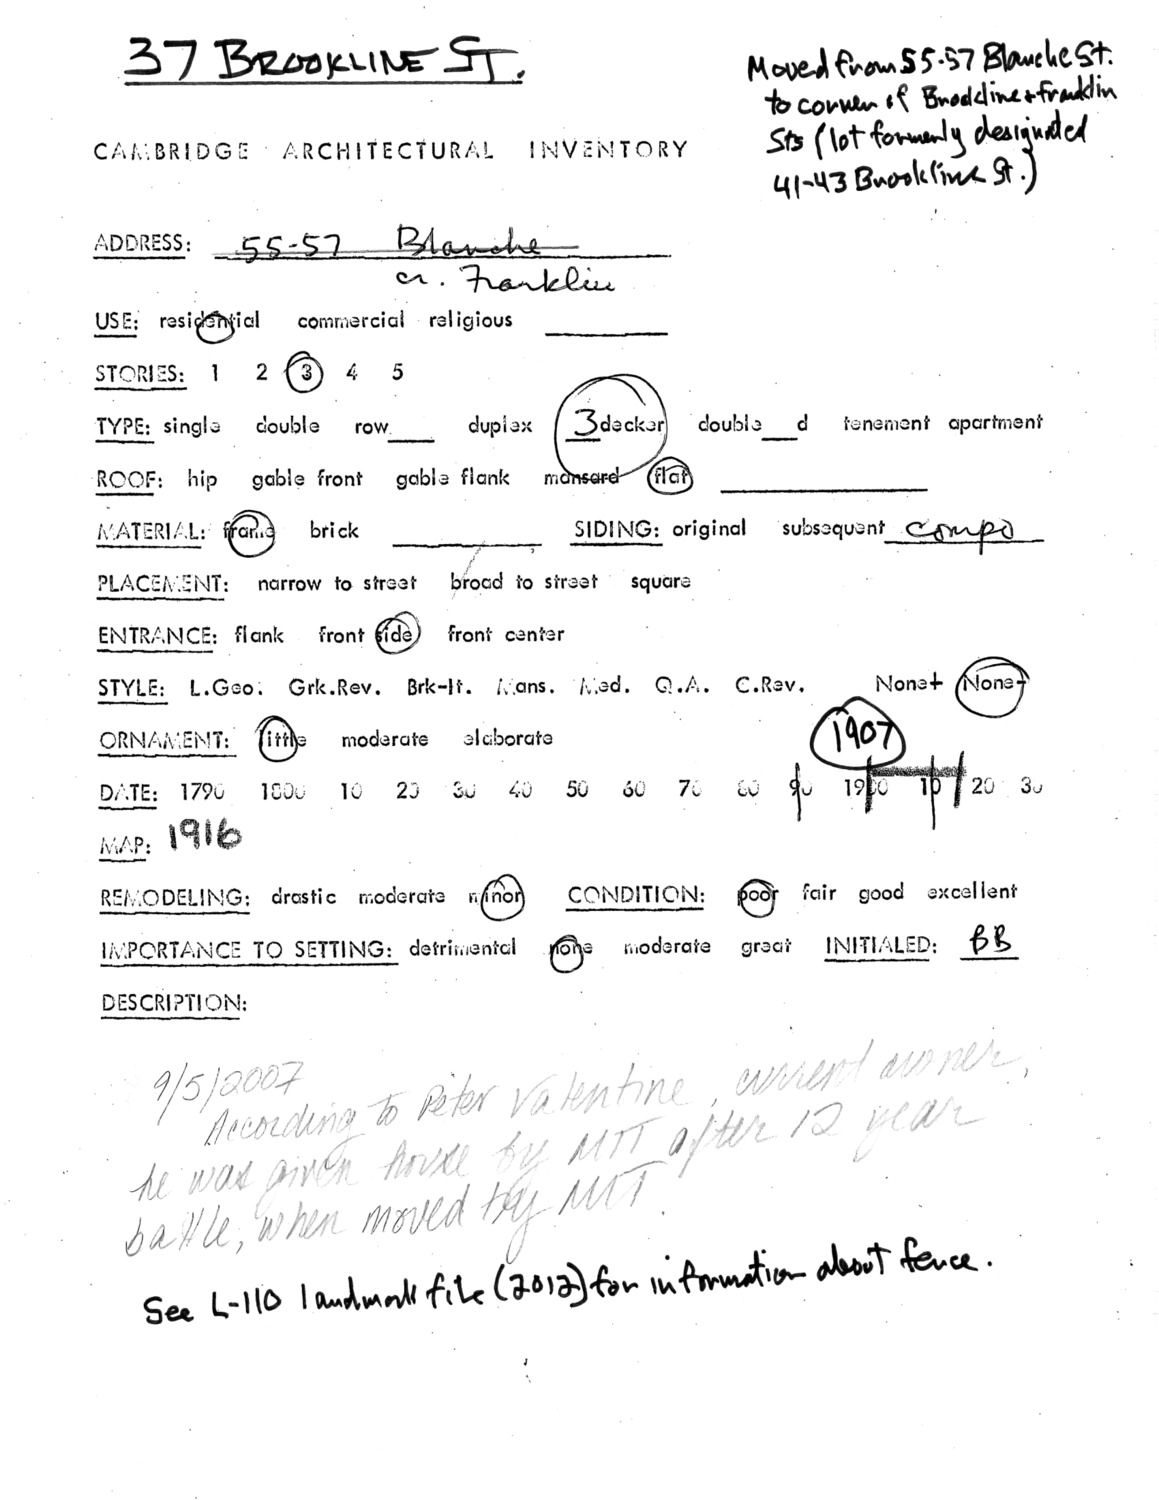 37 BROOKLINE ST.
Moved from 55-57 Blanche St.
to corner of Brookline + Franklin
Sts (lot formerly designated
41-43 Brookline St.)
CAMBRIDGE ARCHITECTURAL INVENTORY
ADDRESS: 55-57 Blanche
cr. Franklin
USE: residential commercial religious
STORIES: 1 2 3 4 5
TYPE: single double row____ duplex 3decker double___d tenement apartment
ROOF: hip gable front gable flank mansard flat
MATERIAL: frame brick SIDING: original subsequent compo
PLACEMENT: narrow to street broad to street square
ENTRANCE: flank front side front center
STYLE: L.Geo. Grk.Rev. Brk-It. Mans. Med. Q.A. C.Rev. None+ None-
ORNAMENT: little moderate elaborate 1907
DATE: 1790 1800 10 20 30 40 50 60 70 80 90 1900 10 20 30
MAP: 1916
REMODELING: drastic moderate minor CONDITION: poor fair good excellent
IMPORTANCE TO SETTING: detrimental none moderate great INITIALED: BB
DESCRIPTION:
9/5/2007
According to Peter Valentine, current owner,
he was given house by MIT after 12 year
battle, when moved by MIT.
See L-110 landmark file (2012) for information about fence.